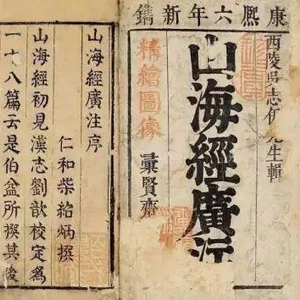 康熙六年新鐫
西陵吳志伊先生輯
山海經廣注
精繪圖像
彙賢齋
山海經廣注序
仁和柴紹炳撰
山海經初見漢志劉歆校定為
一十八篇云是伯益所撰其後